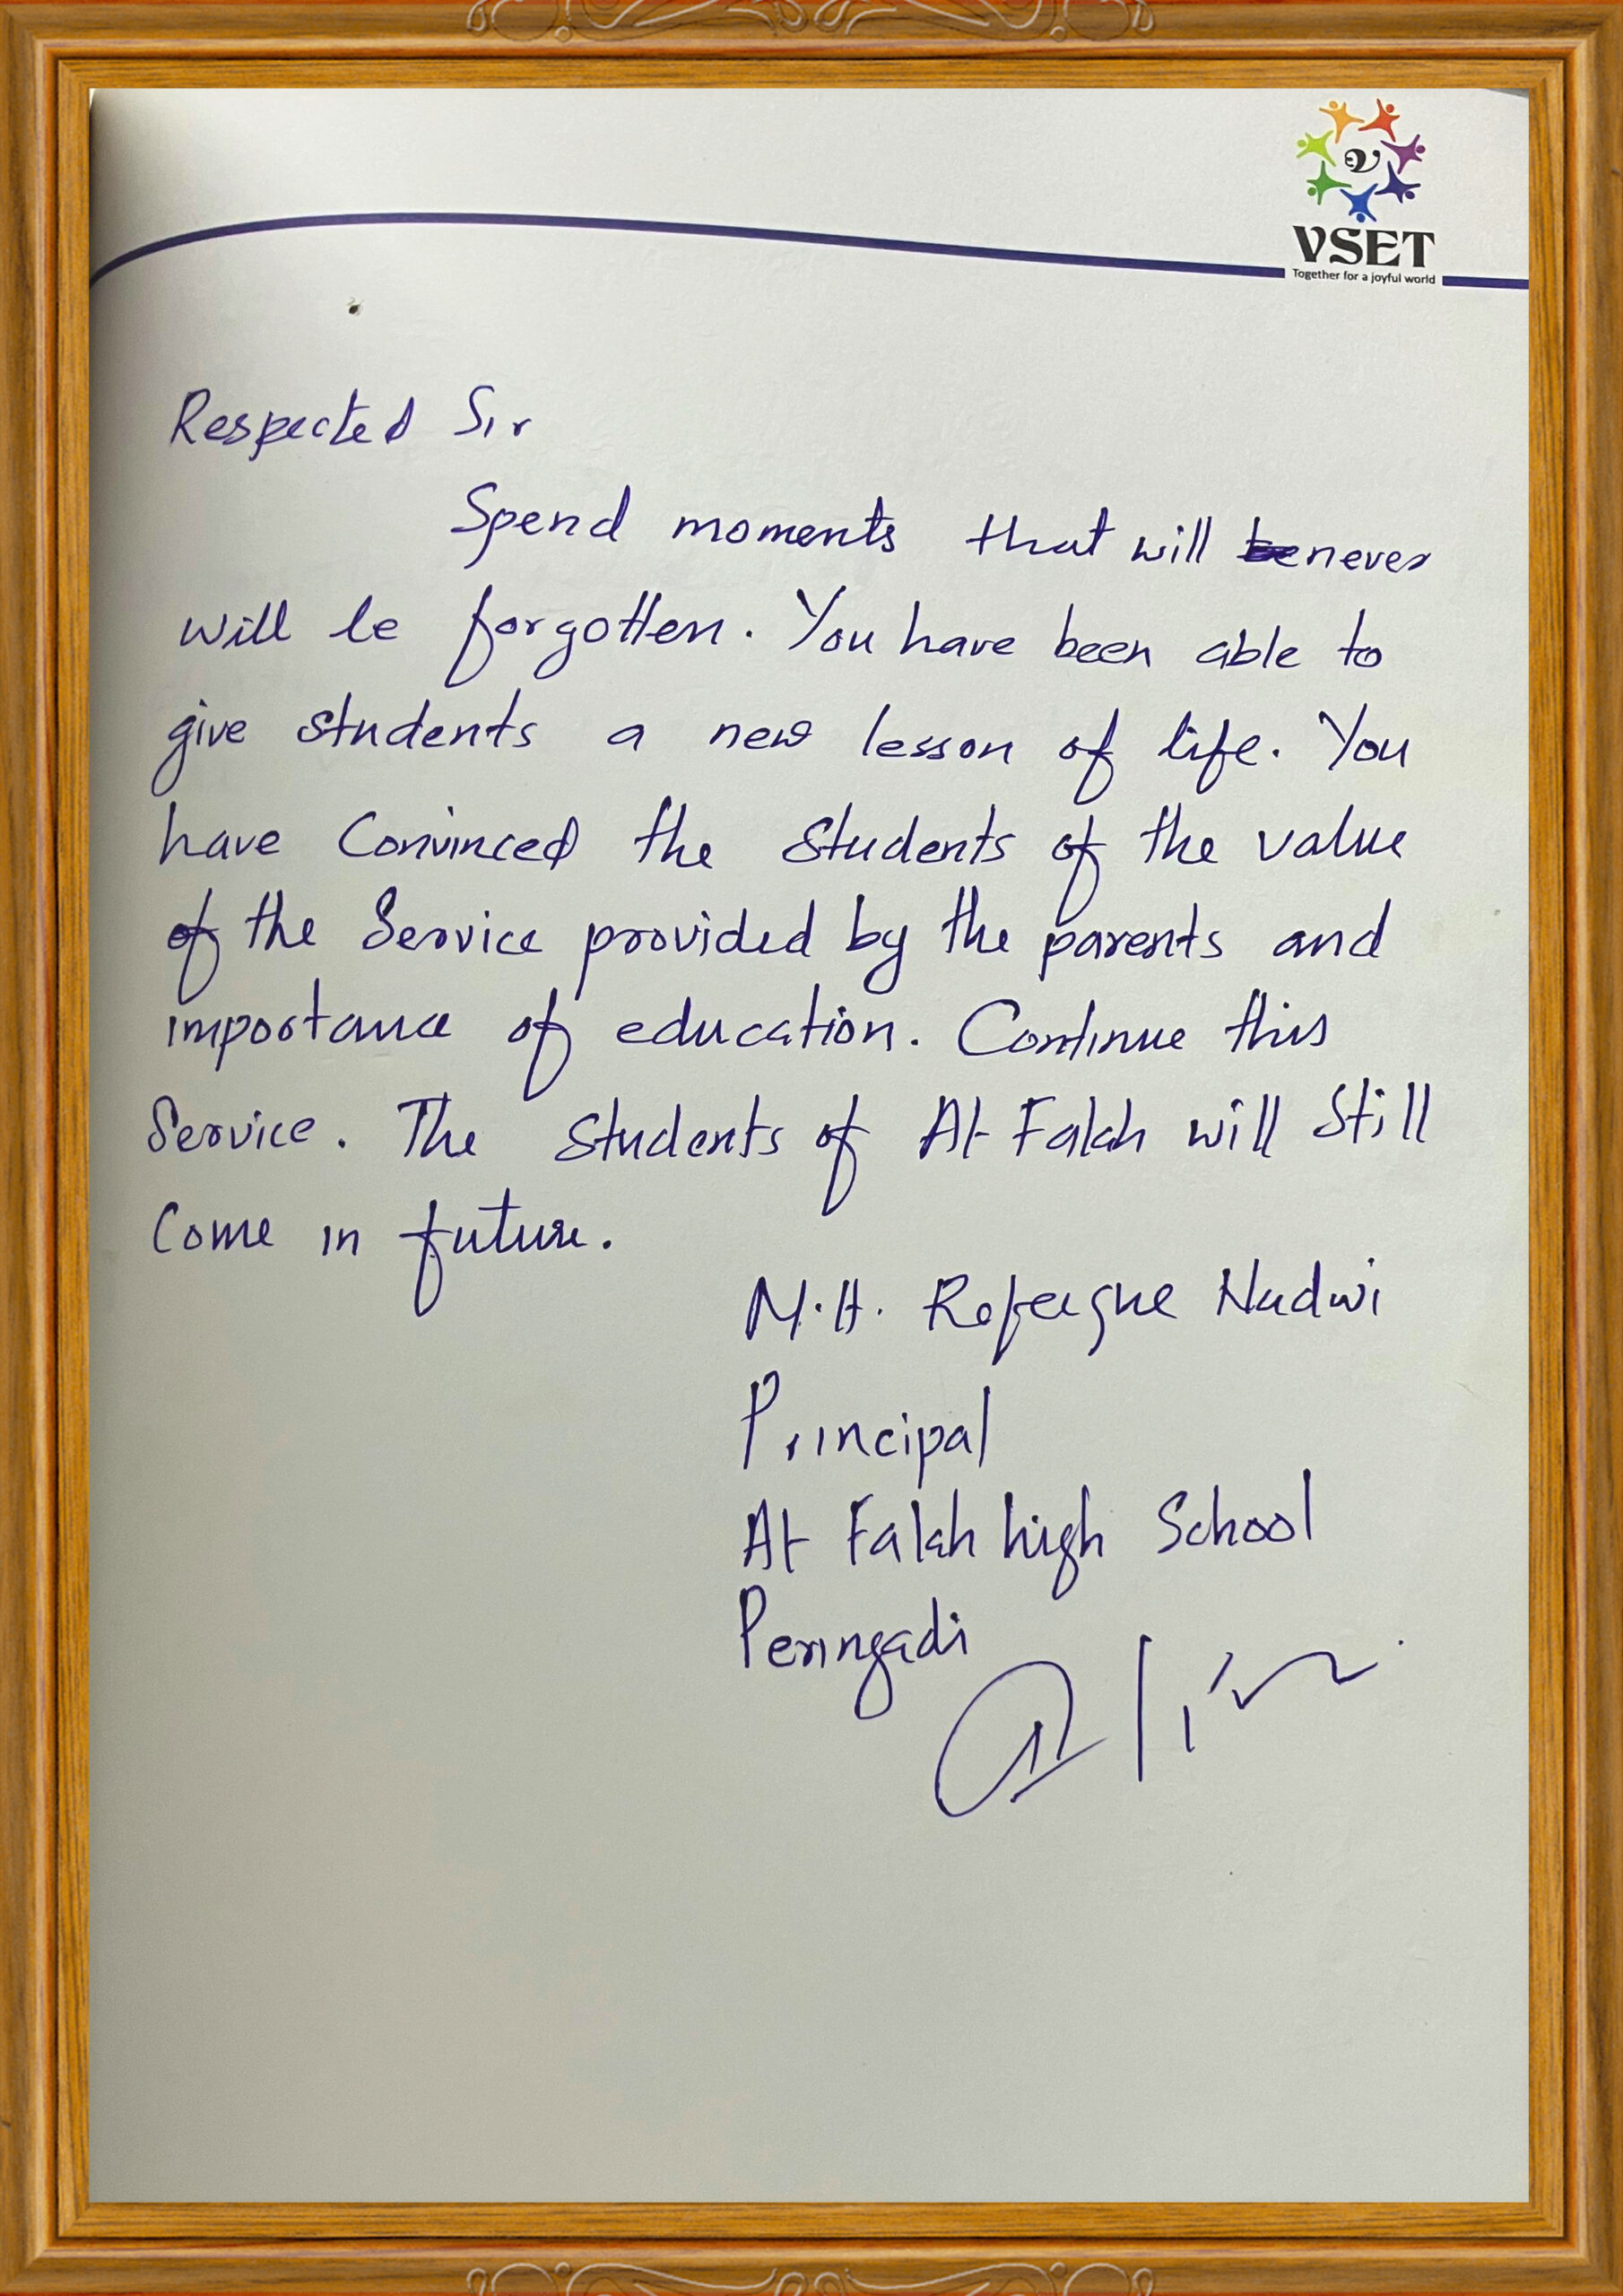 VSET
Together for a joyful world
Respected Sir
Spend moments that will never
will be forgotten. You have been able to
give students a new lesson of life. You
have Convinced the Students of the value
of the Service provided by the parents and
importance of education. Continue this
Service. The Students of Al-Falah will Still
Come in future.
M.H. Rafeeque Nadwi
Principal
Al-Falah high School
Peringadi